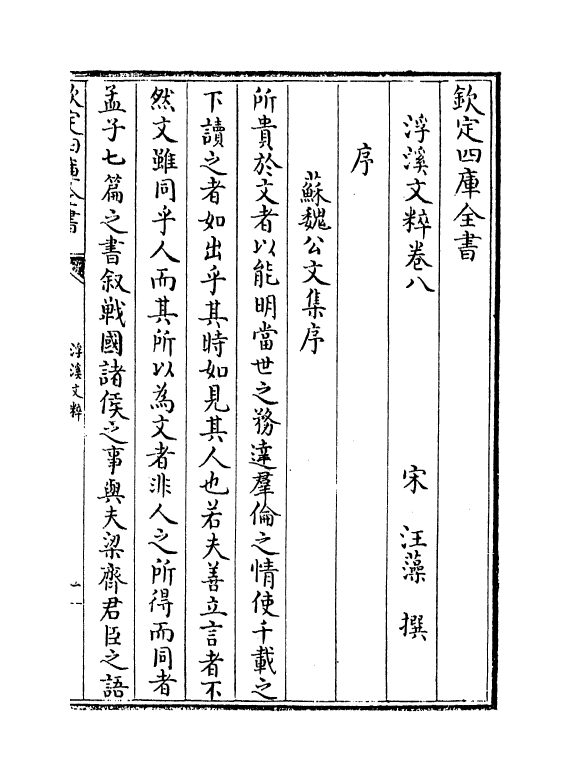 欽定四庫全書
浮溪文粹卷八
宋 汪藻 撰
序
蘇魏公文集序
所貴於文者以能明當世之務達羣倫之情使千載之
下讀之者如出乎其時如見其人也若夫善立言者不
然文雖同乎人而其所以為文者非人之所得而同者
孟子七篇之書叙戰國諸侯之事與夫梁齊君臣之語
欽定四庫全書
浮溪文粹
一